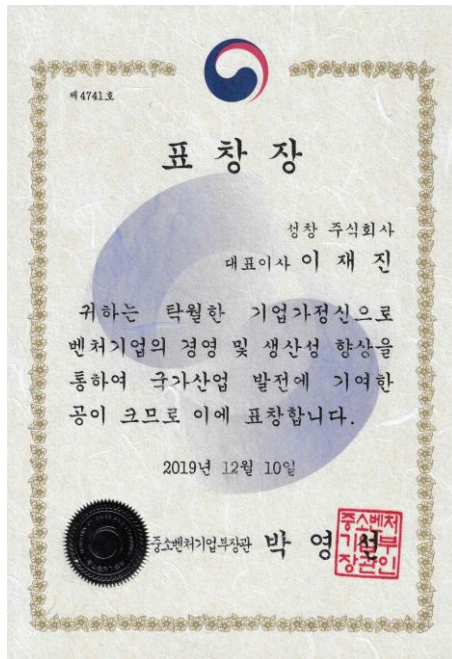 제4741호
표창장
성창 주식회사
대표이사 이재진
귀하는 탁월한 기업가정신으로
벤처기업의 경영 및 생산성 향상을
통하여 국가산업 발전에 기여한
공이 크므로 이에 표창합니다.
2019년 12월 10일
중소벤처기업부장관 박영선
중소벤처
기업부
장관인